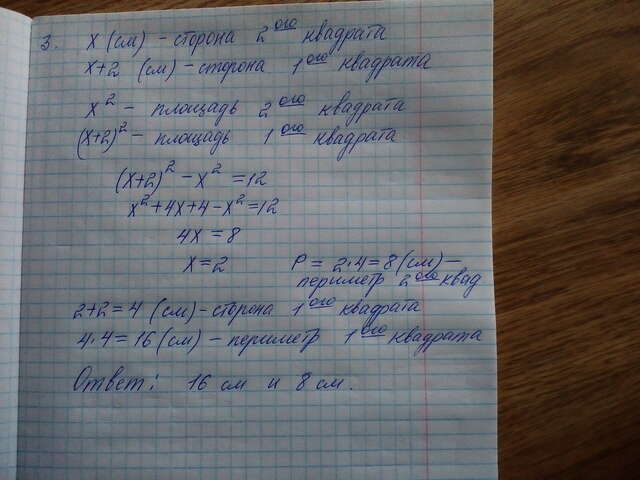 3. x (см) - сторона 2ого квадрата
x+2 (см) - сторона 1ого квадрата
x² - площадь 2ого квадрата
(x+2)² - площадь 1ого квадрата
(x+2)² - x² = 12
x²+4x+4-x²=12
4x = 8
x = 2
P = 2·4=8 (см) -
периметр 2ого квад
2+2=4 (см) - сторона 1ого квадрата
4·4=16 (см) - периметр 1ого квадрата
Ответ: 16 см и 8 см.